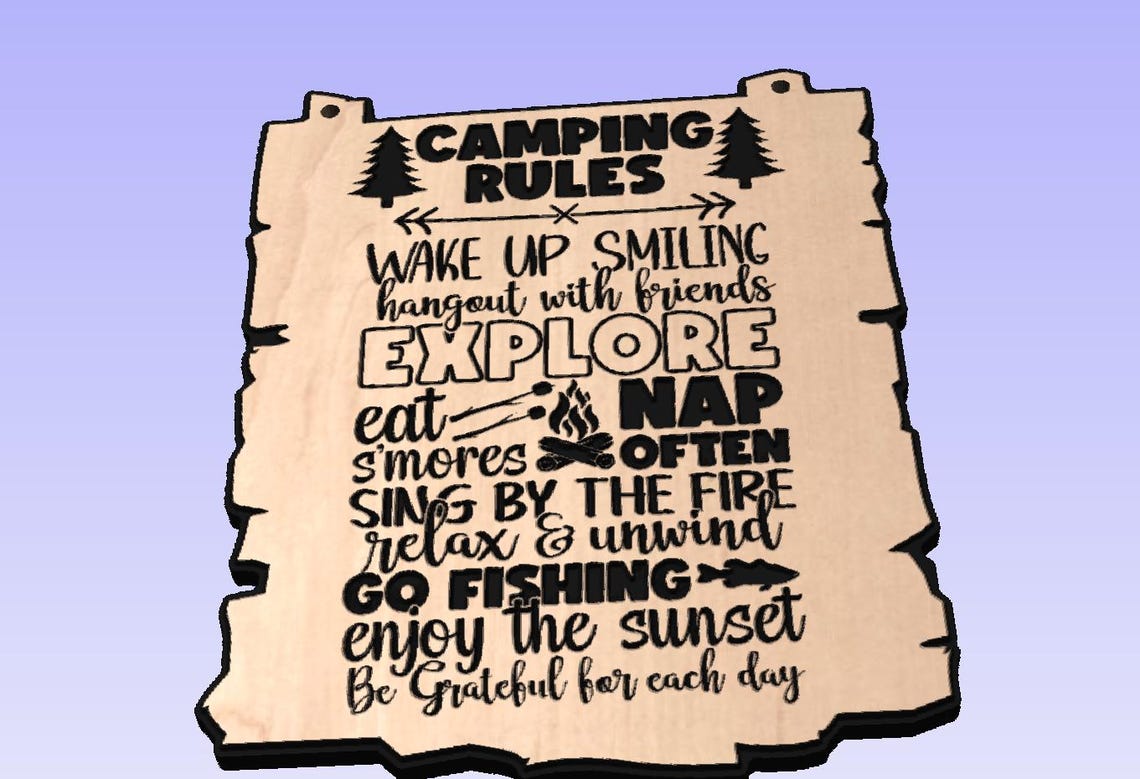 CAMPING
RULES
WAKE UP SMILING
hangout with friends
EXPLORE
eat
s'mores
NAP
OFTEN
SING BY THE FIRE
relax & unwind
GO FISHING
enjoy the sunset
Be Grateful for each day